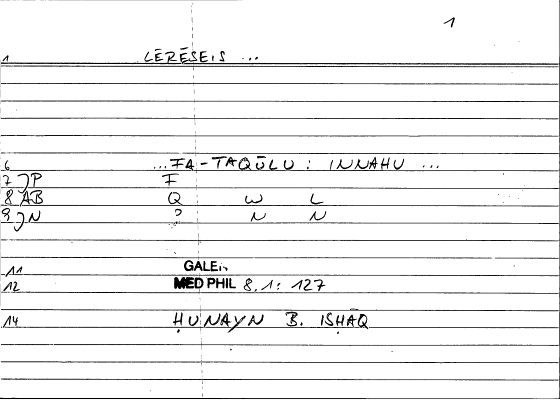 1
1 LĒRĒSEIS ...
6 ...FA-TAQŪLU : INNAHU ...
7 JP F
8 AB Q W L
9 JN ʔ N N
11 GALEN
12 MED PHIL 8.1: 127
14 ḤUNAYN B. ISḤĀQ